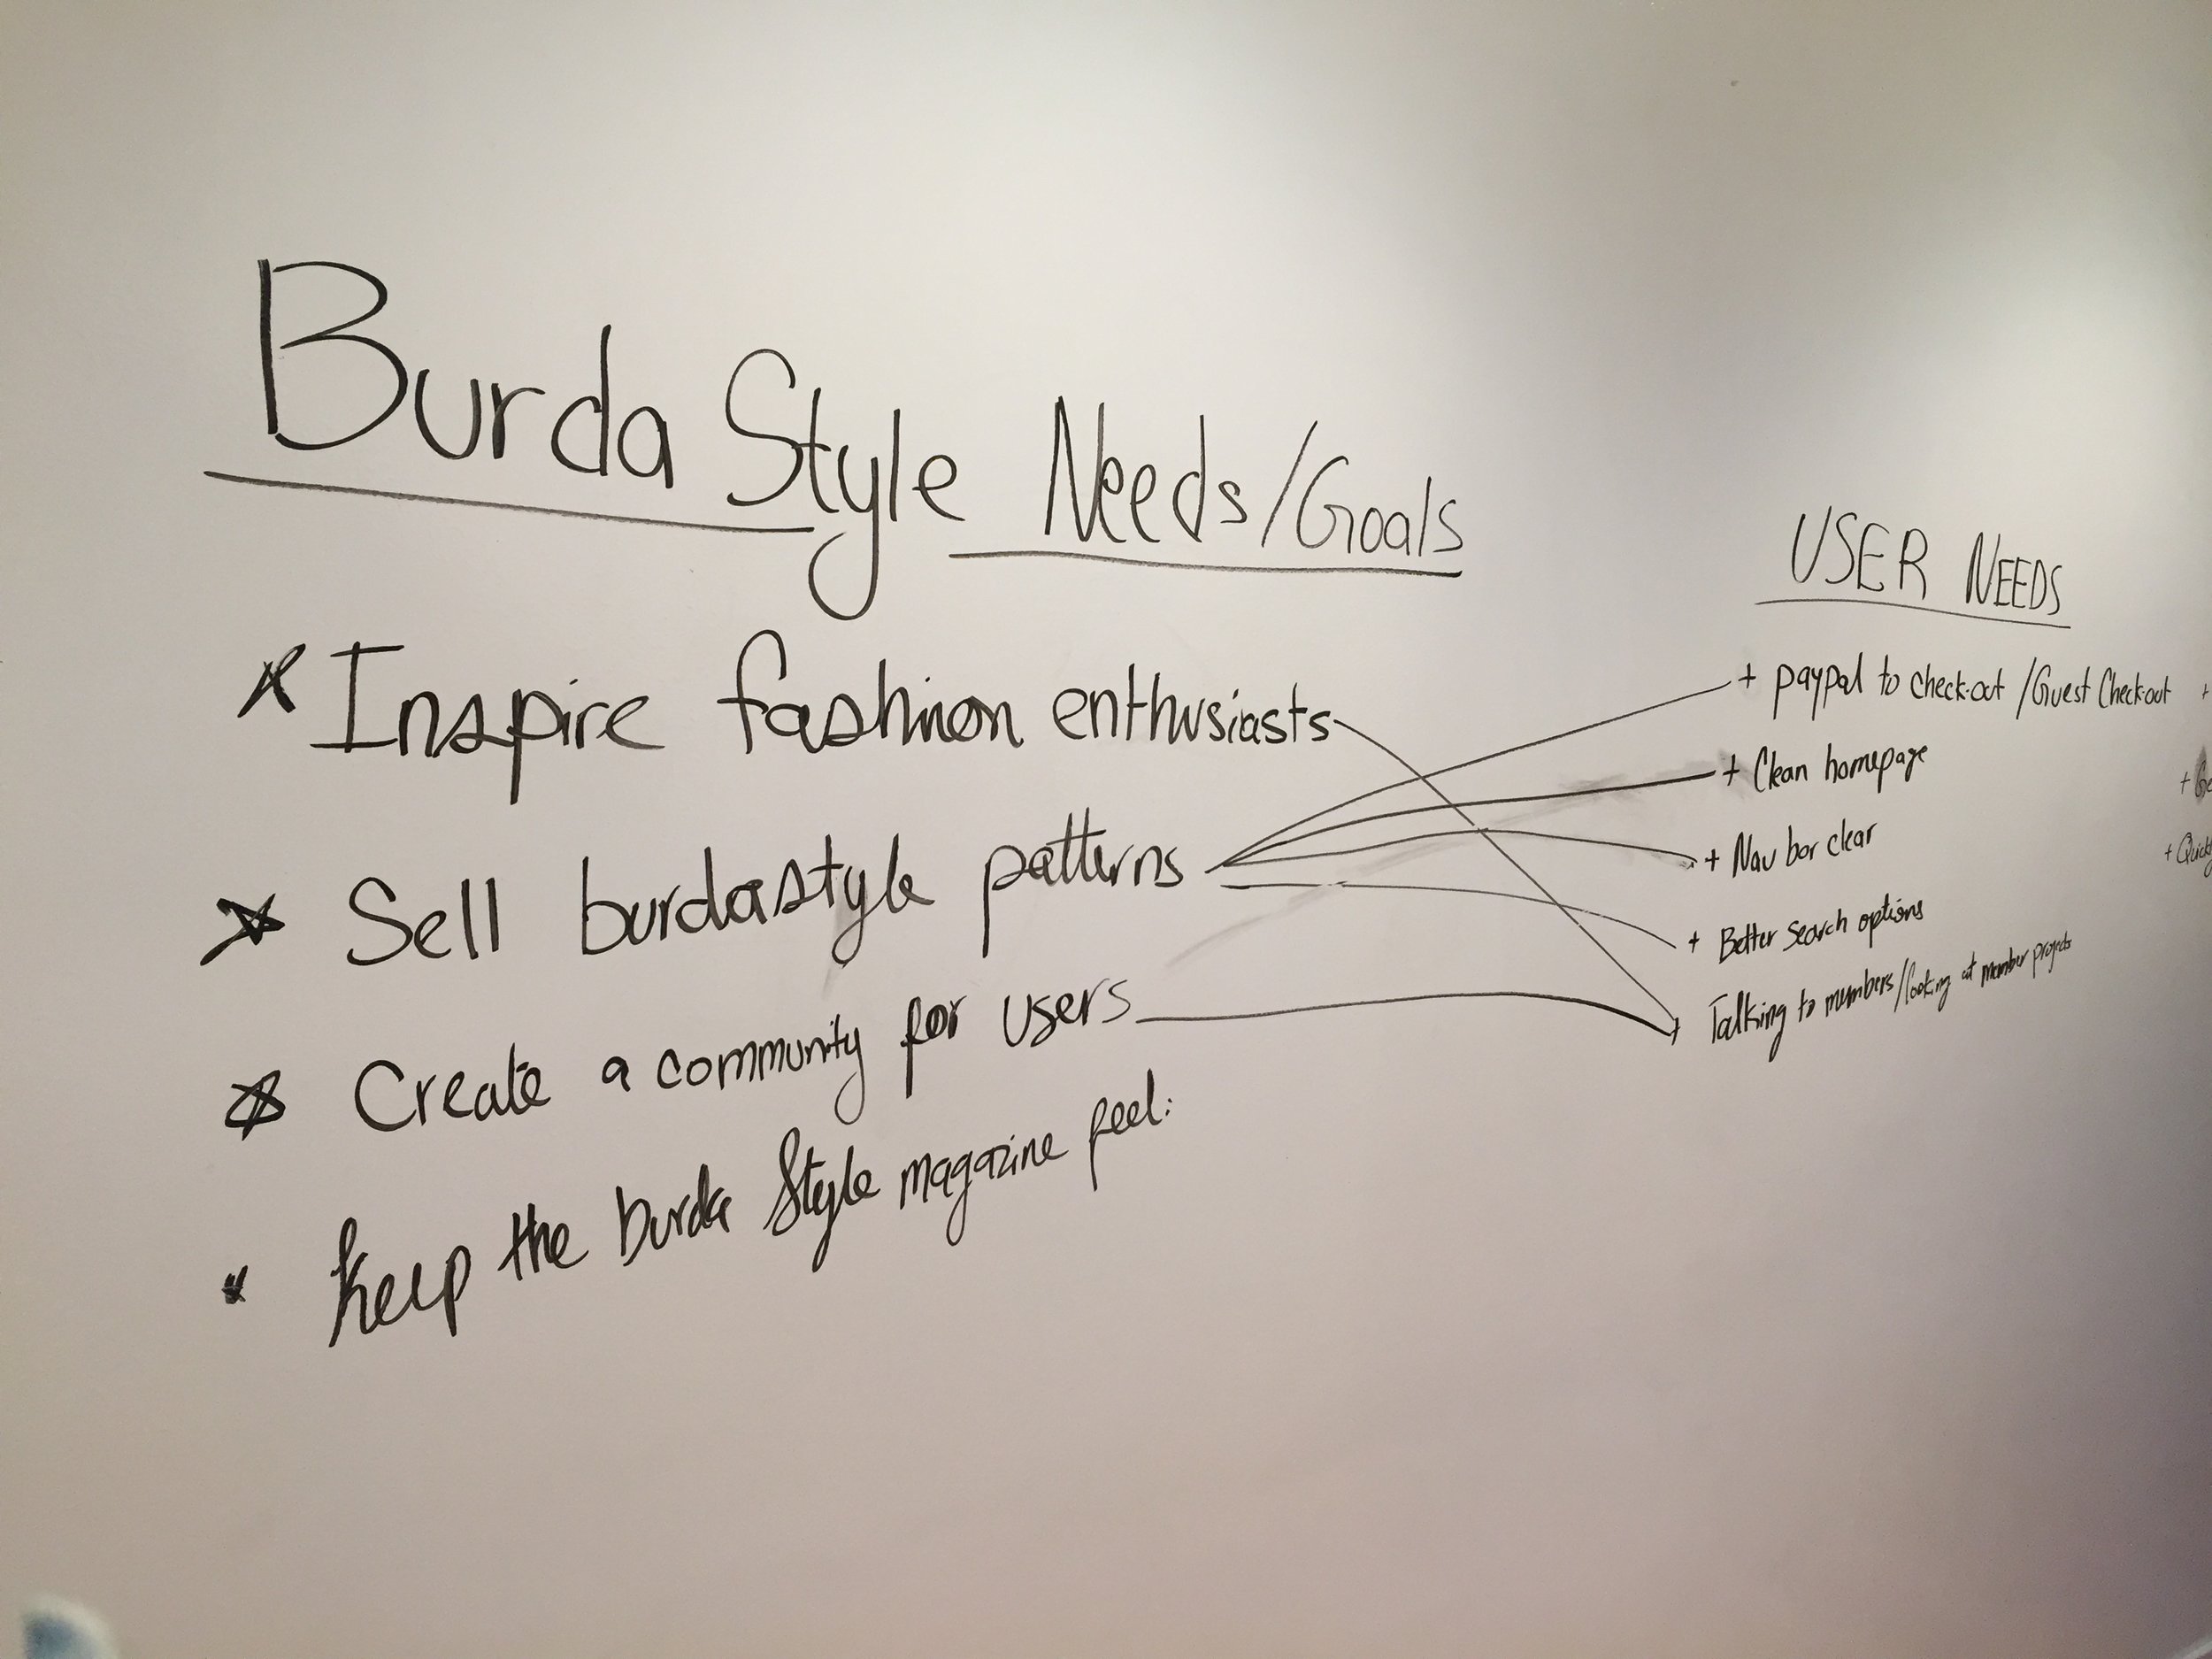 Burda Style Needs/Goals
Inspire fashion enthusiasts
Sell burdastyle patterns
Create a community for users
Keep the burda Style magazine feel:
USER NEEDS
+ paypal to check-out / Guest Checkout
+ Clean homepage
+ Nav bar clear
+ Better search options
+ Talking to members/looking at member projects
+
+
+